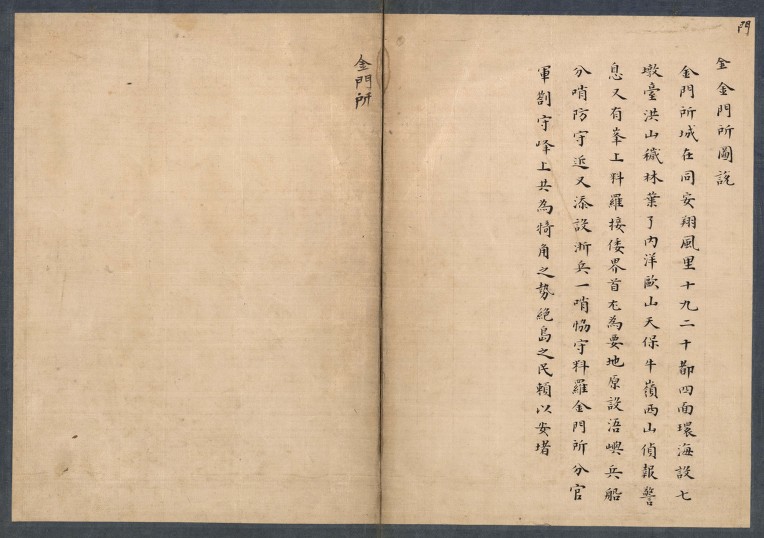 門
金金門所圖說
金門所城在同安翔風里十九二十都四面環海設七
墩臺洪山穢林葉了內洋歐山天保牛嶺两山偵報警
息又有峯上料羅接倭界首尤為要地原設浯嶼兵船
分哨防守近又添設浙兵一哨恊守料羅金門所分官
軍劄守峰上共為犄角之勢絕島之民賴以安堵
金門所